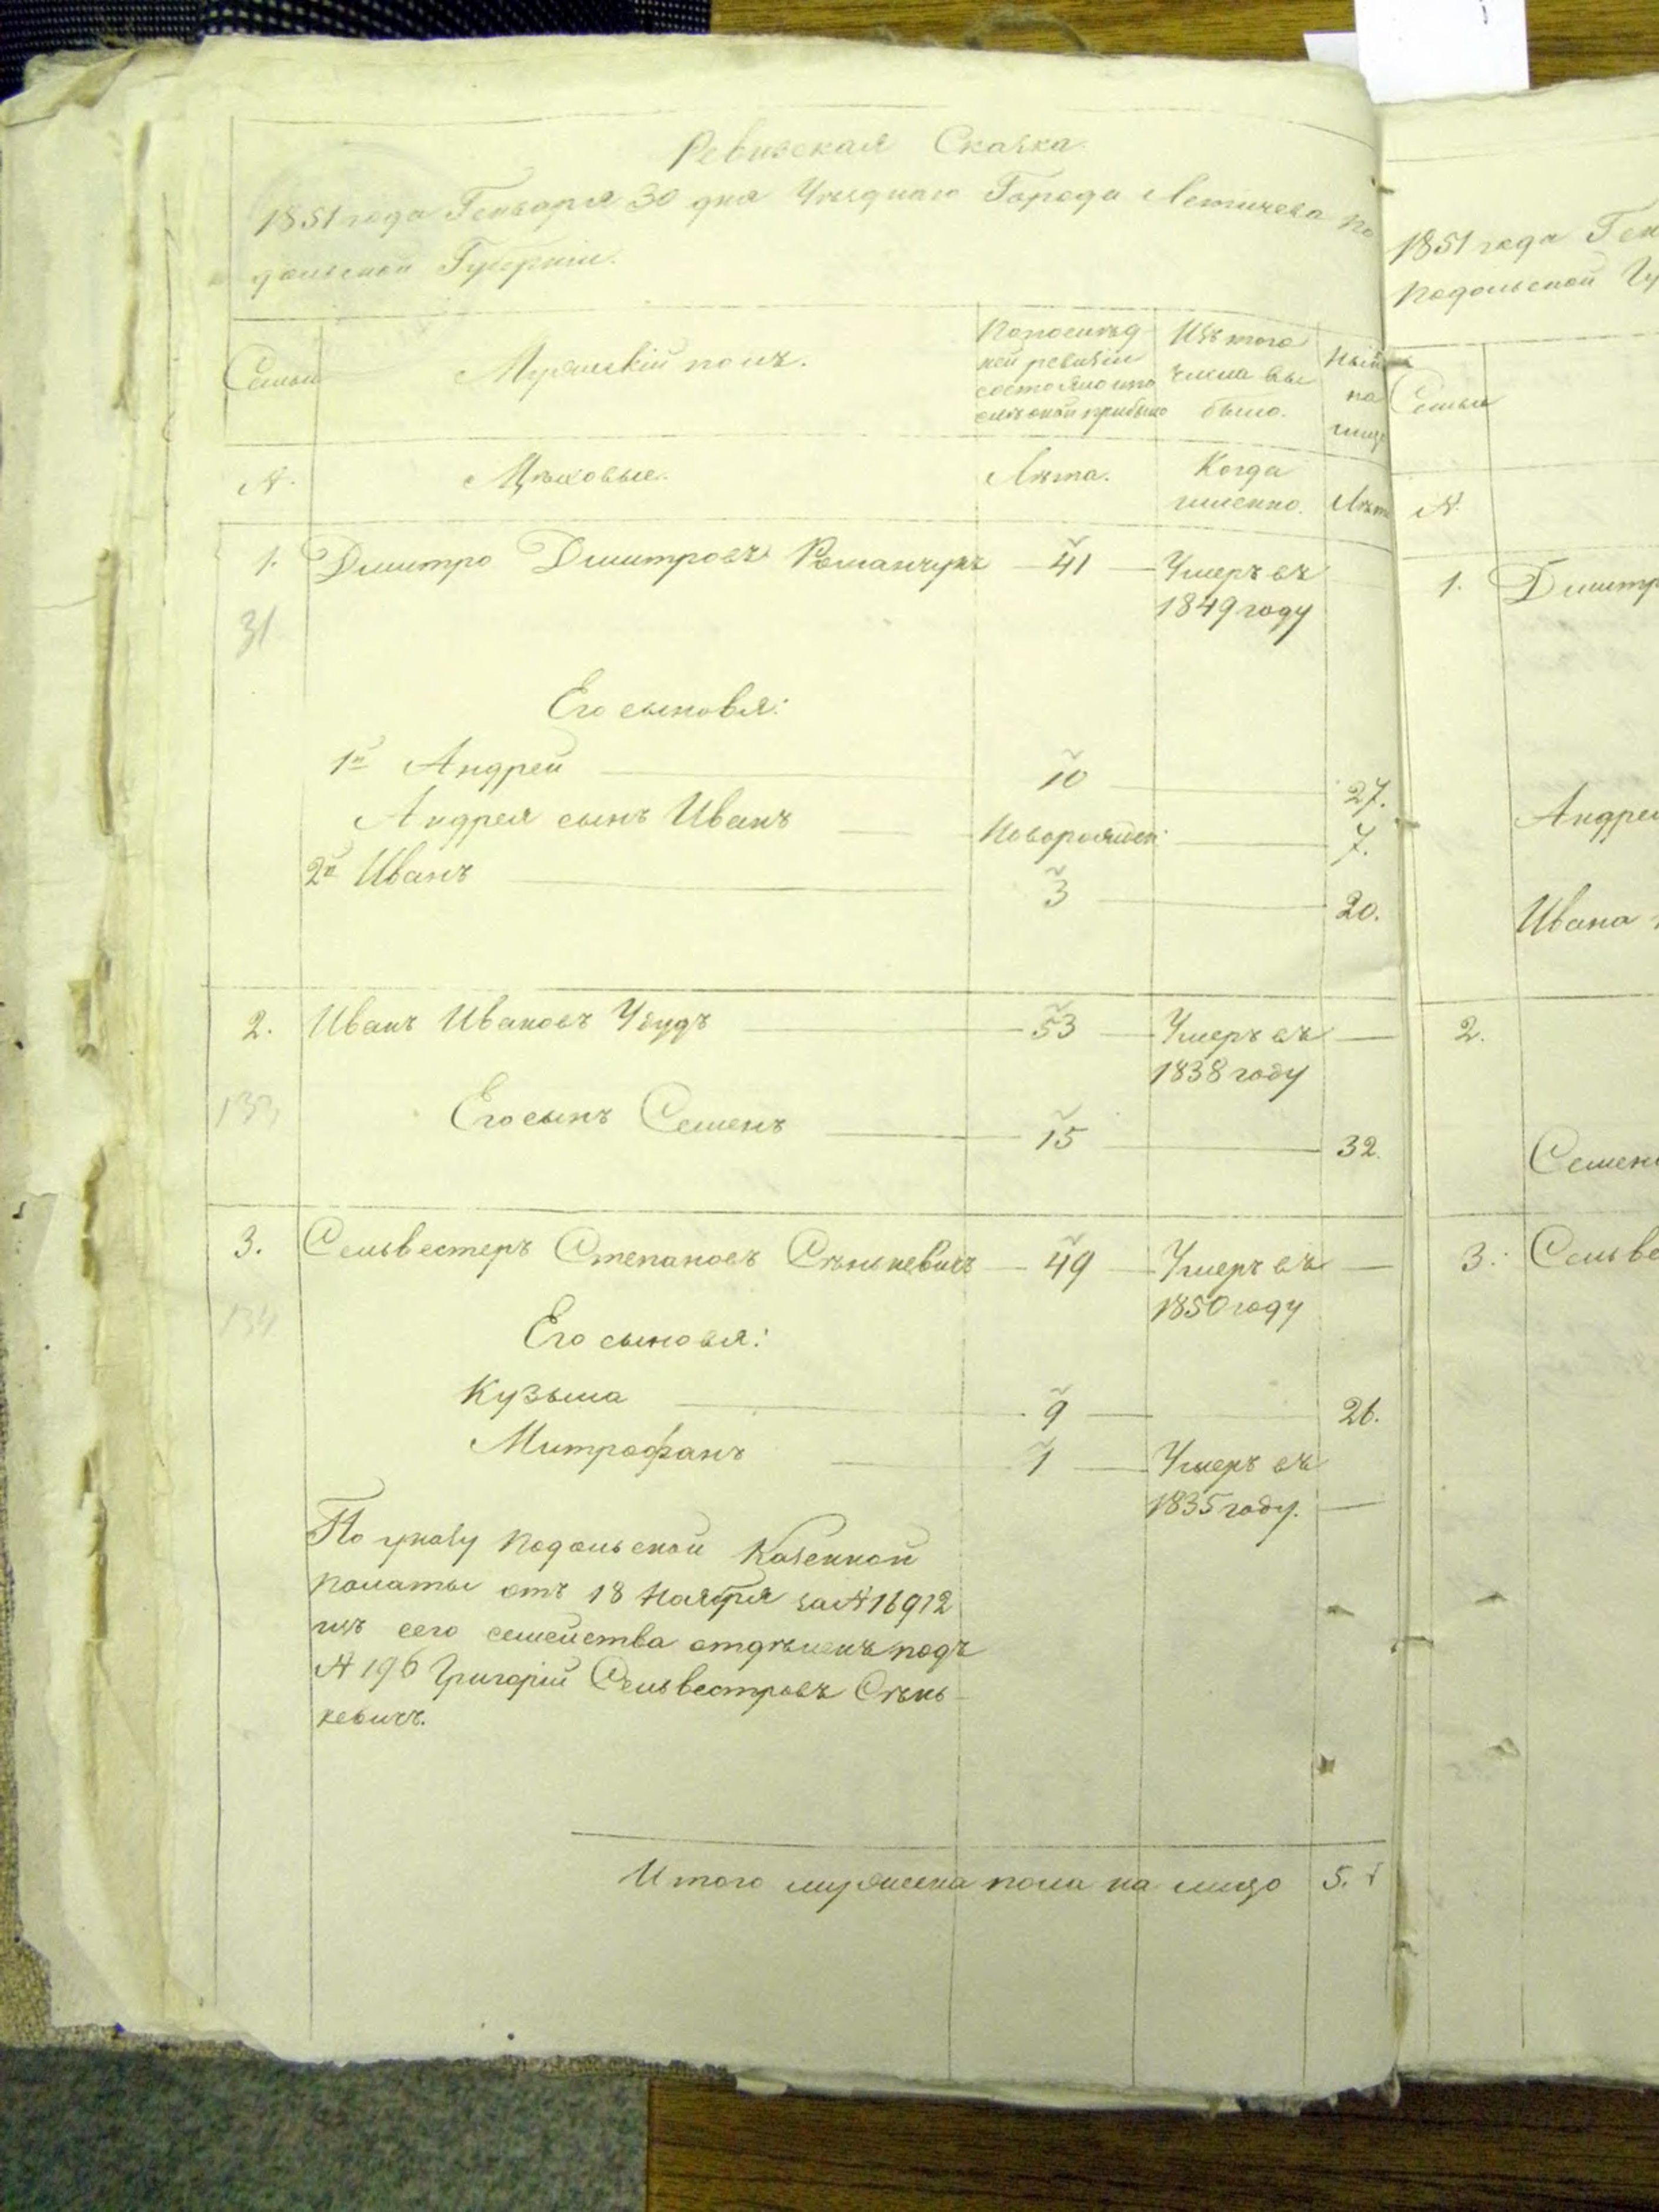 Ревизская Сказка.
1851 года Генваря 30 дня Уезднаго Города Летичева По
дольской Губернии.
Семьи
Мужескій полъ.
По послѣд
ней ревизіи
состояло и по
слѣ оной прибыло
Изъ того
числа вы
было.
Нынѣ
на
лицо
№.
Цѣховые.
Лѣта.
Когда
именно.
Лѣта
1. Дмитро Дмитровъ Романчукъ 41 Умеръ въ
1849 году
31
Его сыновья:
1й Андрей 10 27.
Андрея сынъ Иванъ Новорожден: 7.
2й Иванъ 3 20.
2. Иванъ Ивановъ 53 Умеръ въ
1838 году
133
Его сынъ Семенъ 15 32.
3. Сельвестеръ Степановъ Сѣнькевичъ 49 Умеръ въ
1850 году
134
Его сыновья:
Кузьма 9 26.
Митрофанъ 1 Умеръ въ
1835 году.
По указу Подольской Казенной
Палаты отъ 18 Ноября за № 16912
изъ сего семейства отдѣленъ подъ
№ 196 Григорій Сельвестровъ Сѣнь-
кевичъ.
Итого мужеска пола на лицо 5.
1851 года Ген
Подольской Гу
Семьи
№.
1. Дмитр
Андрея
Ивана
2.
Семен
3. Сельве